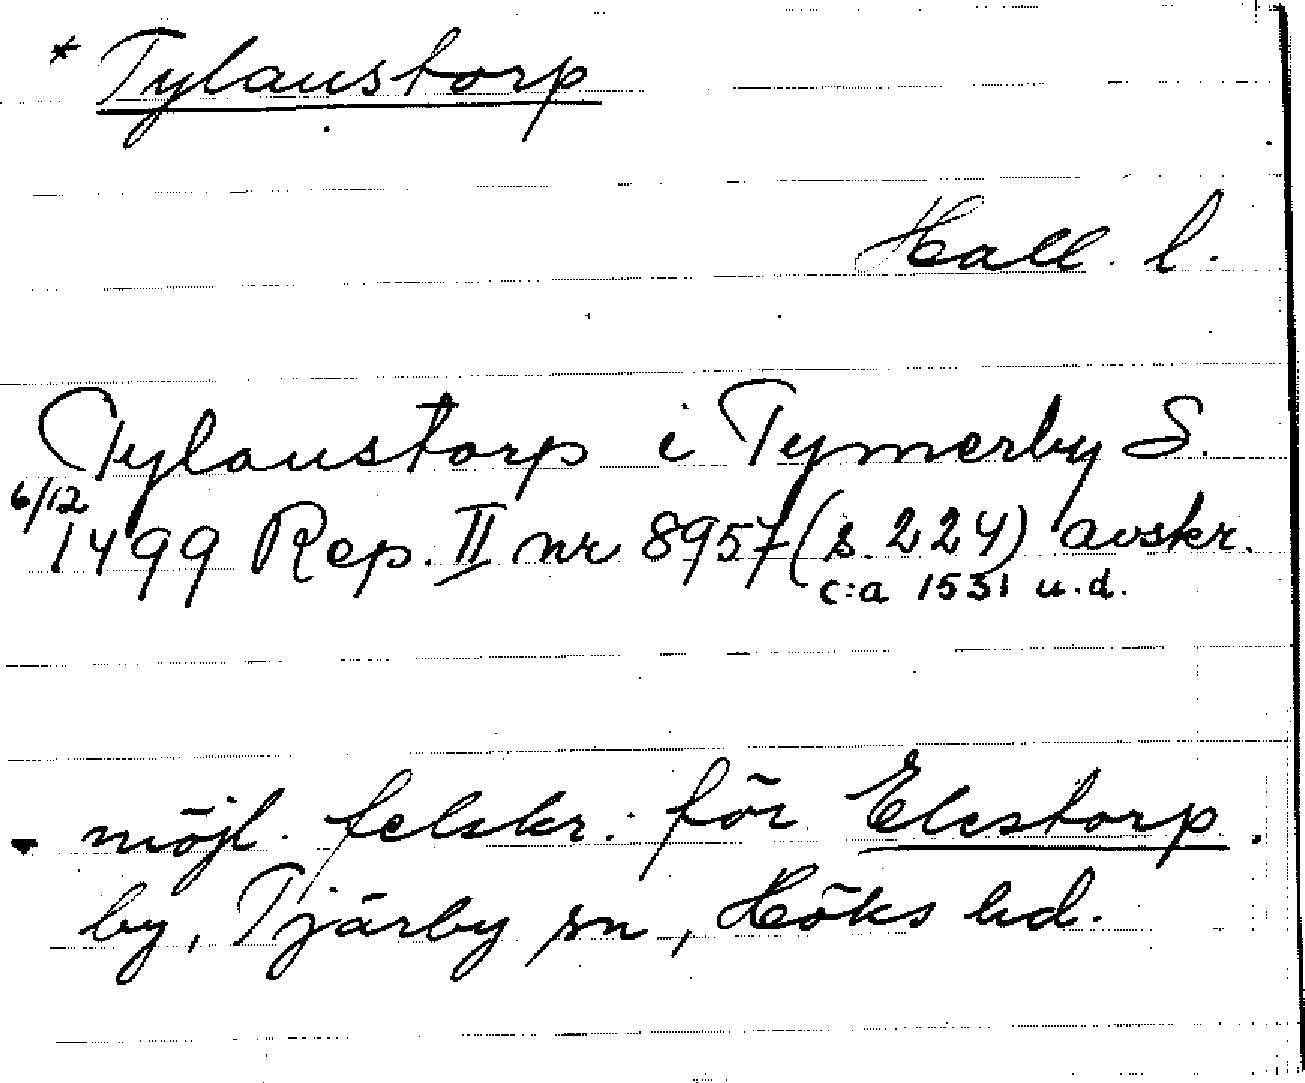 * Tylaustorp
Hall. l.
Tylaustorp i Tymerby S.
6/12 1499 Rep. II nr 8957 (s. 224) avskr.
c:a 1531 u.d.
- möjl. felskr. för Elestorp.
by, Tjärby sn, Höks hd.